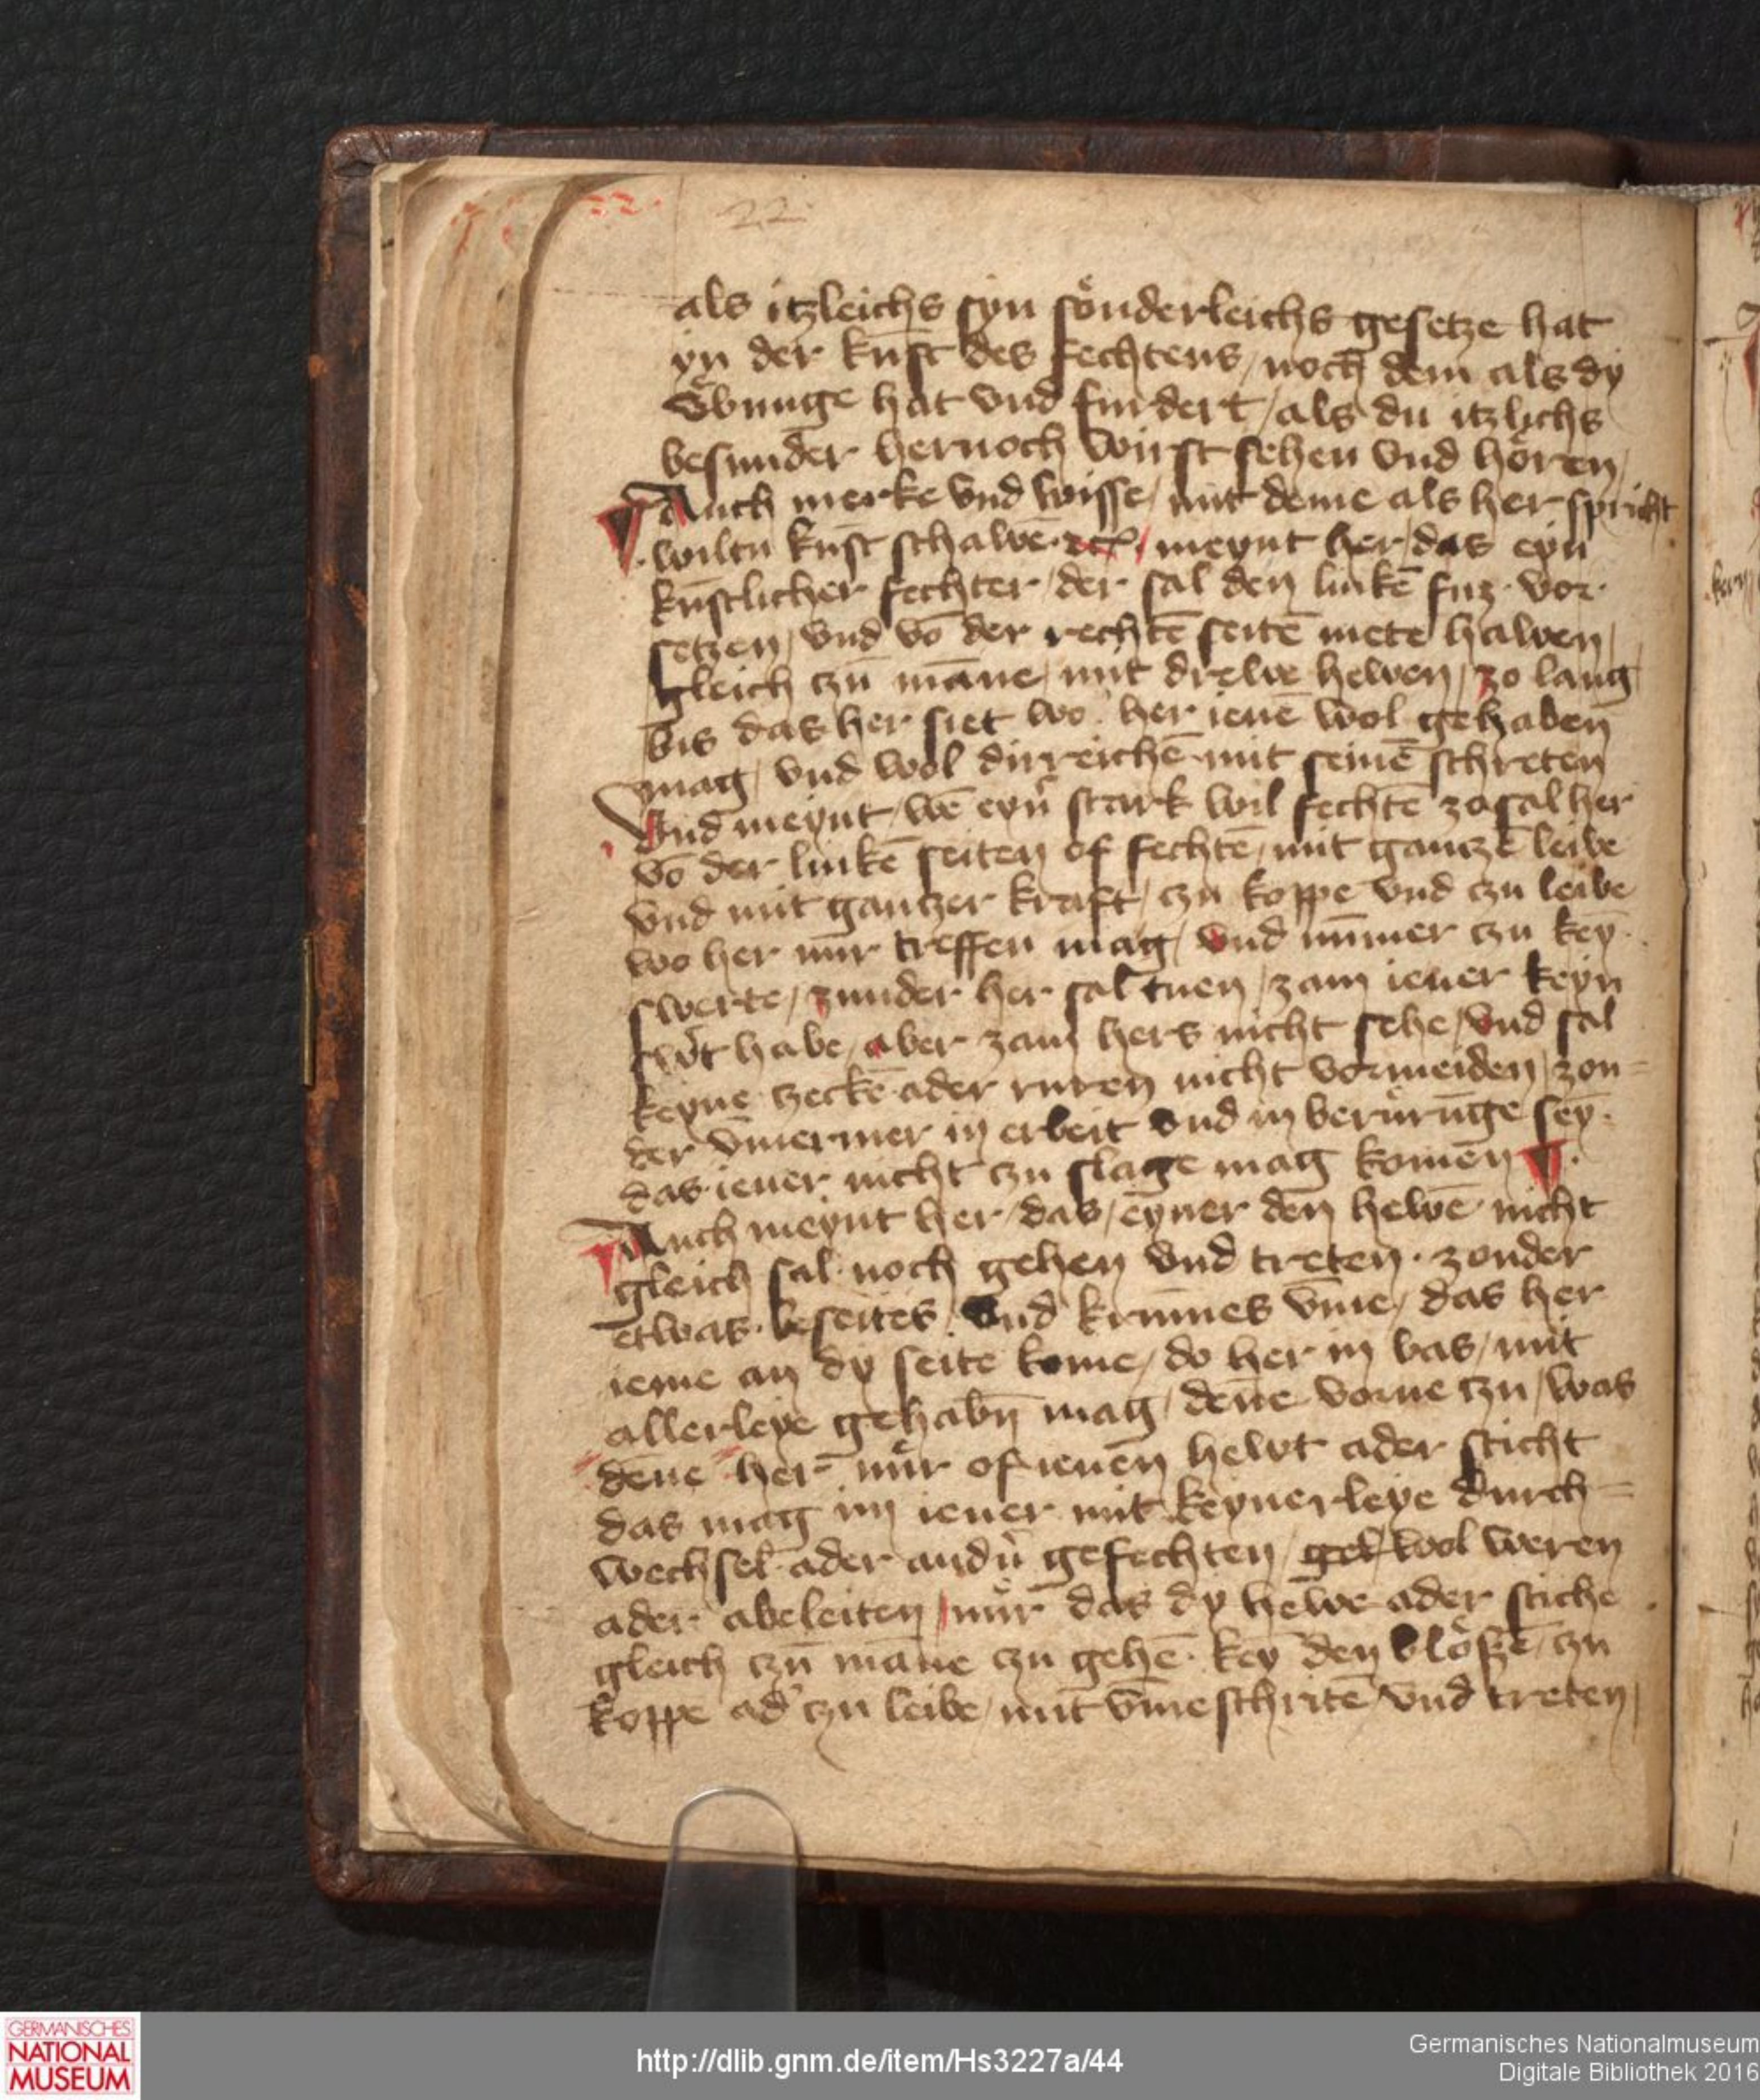 22
als itzleichs syn sönderleichs gesetze hat
yn der kunst des fechtens / noch dem als dy
übunge hat vnd fudert / als du itzlichs
besunder hernoch wirst sehen vnd hören /
Auch merke vnd wisse / mit deme als her spricht
wiltu kunst schawē etc̃ / meynt her / das eyn
kūstlicher fechter / der sal den linkē fuz vor
setzen / vnd vō der rechtē seitē mete hawen /
gleich czū māne / mit drewe hewen / zo lang
bis das her siet wo her ienē wol gehaben
mag / vnd wol dirreichē mit seinē schreten
Vnd meynt / wē eyn̾ stark wil fechtē zo sal her
vō der linkē seiten of fechtē / mit gantzē leibe
vnd mit gantzer kraft / czu koppe vnd czu leibe
wo her nür treffen mag / vnd nūmer czu key̅
swerte / zunder her sal tuen / zam iener keyn
sw̾t habe / aber zam hers nicht sehe / vnd sal
keyne zeckē ader ruren nicht vormeiden / zon=
der ūmermer in erbeit vnd in berürūge sey̅
das iener nicht czu slage mag komen ¶
Auch meynt her / das / eyner den hewē nicht
gleich sal noch gehen vnd treten · zonder
etwas beseites vnd krūmes ūme / das her
ieme an dy seite kome / do her in bas / mit
allerleye gehabn̄ mag / denne vorne czu / was
denne her nür of ienen hewt ader sticht
das mag im iener mit keynerleye durch=
wechsel ader andn̾ gefechten / wol weren
ader abeleiten / nür das dy hewe ader stiche
gleich czū māne czu gehē key̅ den blößē / czu
koppe ad̾ czu leibe / mit ūmeschritē vnd treten /
GERMANISCHES
NATIONAL
MUSEUM
http://dlib.gnm.de/item/Hs3227a/44
Germanisches Nationalmuseum
Digitale Bibliothek 2016